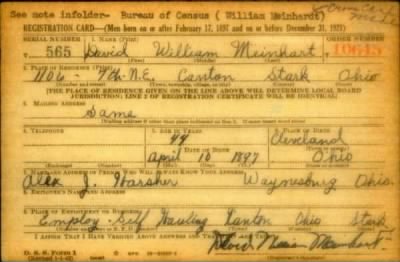 See note infolder- Bureau of Census (William Meinhardt)
REGISTRATION CARD—(Men born on or after February 17, 1897 and on or before December 31, 1921)
SERIAL NUMBER 1. NAME (Print) ORDER NUMBER
565 David William Meinhart 10645
(First) (Middle) (Last)
2. PLACE OF RESIDENCE (Print)
1106 - 7th N.E. Canton Stark Ohio
(Number and street) (Town, township, village, or city) (County) (State)
[THE PLACE OF RESIDENCE GIVEN ON THE LINE ABOVE WILL DETERMINE LOCAL BOARD
JURISDICTION; LINE 2 OF REGISTRATION CERTIFICATE WILL BE IDENTICAL]
3. MAILING ADDRESS
Same
[Mailing address if other than place indicated on line 2. If same insert word same]
4. TELEPHONE 5. AGE IN YEARS 6. PLACE OF BIRTH
44 Cleveland
DATE OF BIRTH
April 10 1897 Ohio
(Exchange) (Number) (Mo.) (Day) (Yr.) (State or country)
7. NAME AND ADDRESS OF PERSON WHO WILL ALWAYS KNOW YOUR ADDRESS
Alex J. Harsher Waynesburg Ohio.
8. EMPLOYER'S NAME AND ADDRESS
9. PLACE OF EMPLOYMENT OR BUSINESS
Employ-Self Hauling Canton Ohio Stark
I AFFIRM THAT I HAVE VERIFIED ABOVE ANSWERS AND THAT THEY ARE TRUE.
D. S. S. Form 1
Meinhart